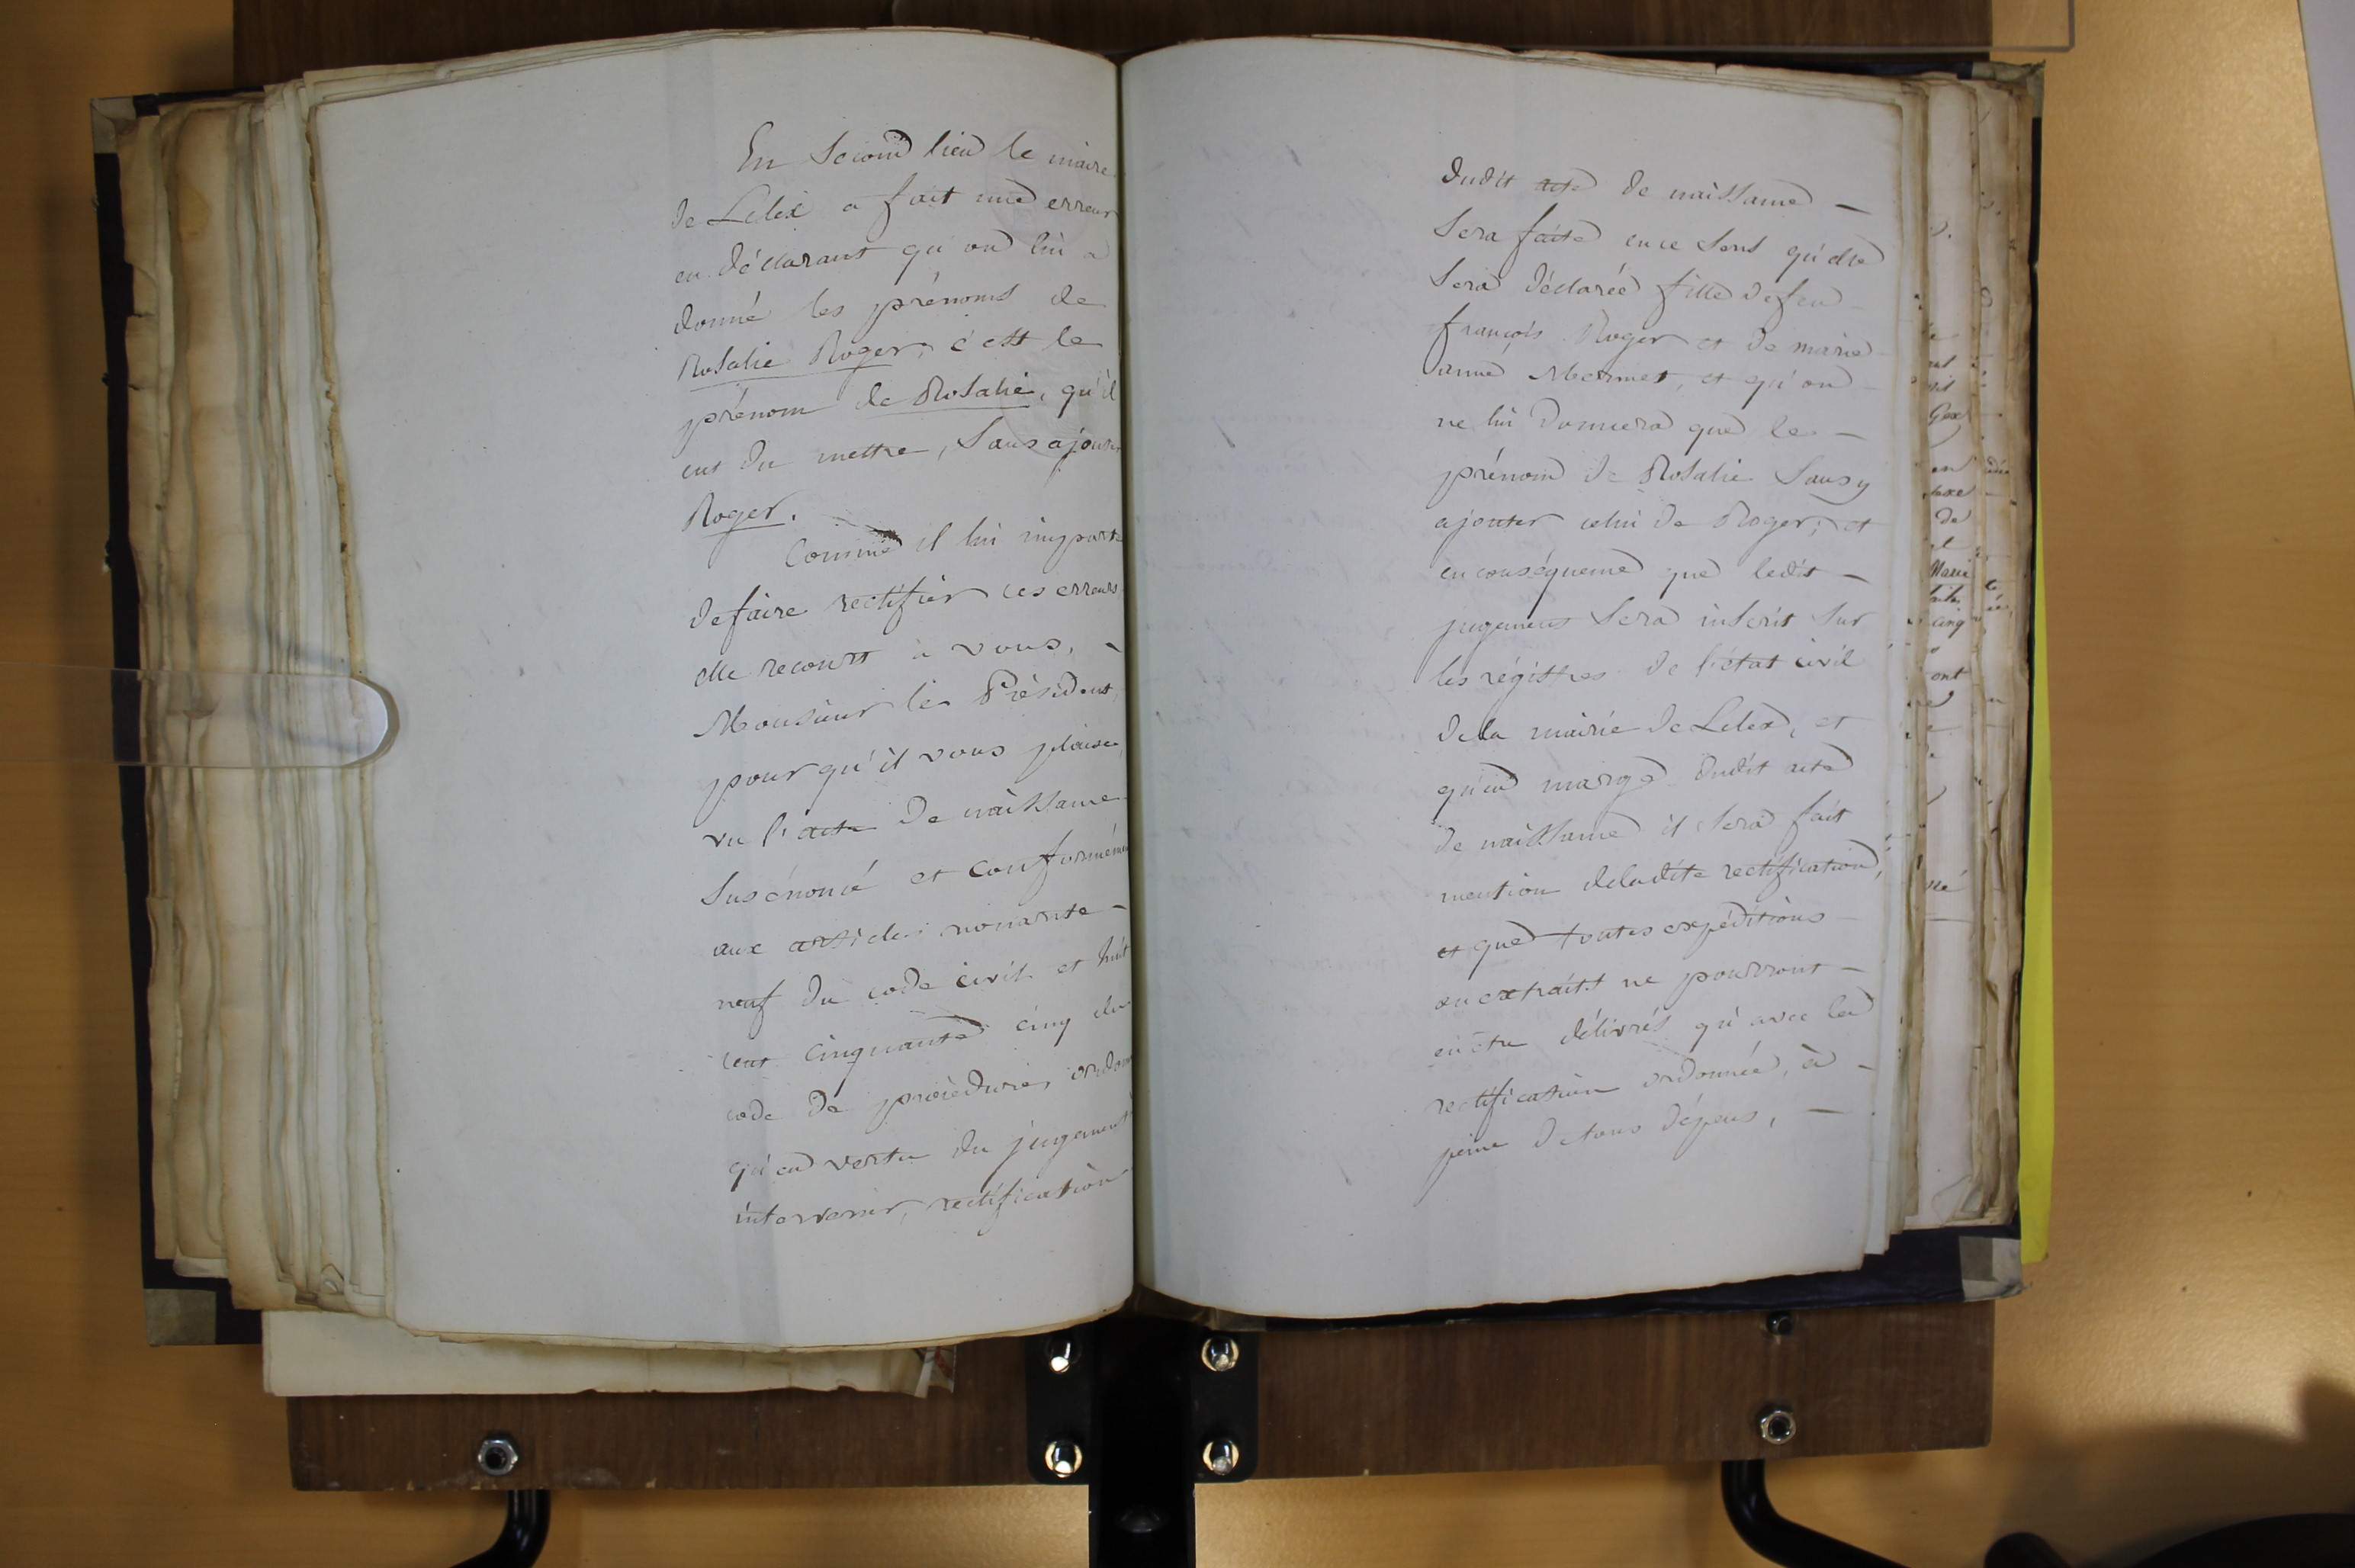 En Second lieu le maire
de Lelex a fait une erreur
en déclarant qu'on lui a
donné les prénoms de
Rosalie Roger; c'est le
prénom de Rosalie, qu'il
eut du mettre, Sans ajouter
Roger.
Comme il lui importe
de faire rectifier ces erreurs
elle recourt à vous,
Monsieur le Président,
pour qu'il vous plaise,
vu l'acte de naissance
Susénoncé et conformément
aux articles nonante
neuf du code civil et huit
cent cinquante cinq du
code de procédure, ordonner
qu'en vertu du jugement à
intervenir, rectification
dudit acte de naissance —
Sera faite en ce Sens qu'elle
Sera déclarée fille de feu
françois Roger et de marie
anne Mermet, et qu'on
ne lui donnera que le —
prénom de Rosalie Sans y
ajouter celui de Roger; et
en conséquence que ledit —
jugement Sera inscrit Sur
les régistres de l'état civil
de la mairie de Lelex, et
qu'en marge dudit acte
de naissance il Sera fait
mention de ladite rectification,
et que toutes expéditions
ou extraits ne pourront —
en être délivrés qu'avec la
rectification ordonnée, à —
peine de tous dépens, —
Gex
de
Marie
cinq
ont